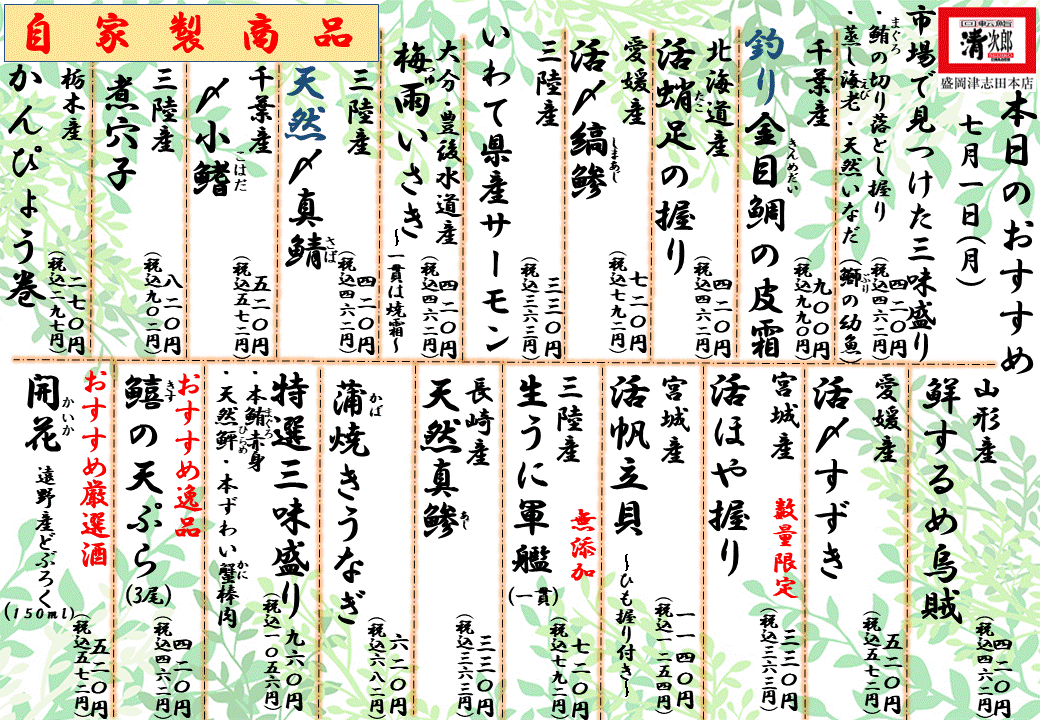 回転鮨
清次郎
盛岡津志田本店
本日のおすすめ
七月一日(月)
市場で見つけた三味盛り
・鮪の切り落とし握り
まぐろ
・蒸し海老・天然いなだ(鰤の幼魚)
えび
ぶり
四二〇円
(税込四六二円)
千葉産
釣り金目鯛の皮霜
きんめだい
九〇〇円
(税込九九〇円)
北海道産
活蛸足の握り
たこ
四二〇円
(税込四六二円)
愛媛産
活〆縞鯵
しまあじ
七二〇円
(税込七九二円)
三陸産
いわて県産サーモン
三三〇円
(税込三六三円)
大分・豊後水道産
梅雨いさき
つゆ
~一貫は焼霜~
四二〇円
(税込四六二円)
自家製商品
三陸産
天然〆真鯖
さば
四二〇円
(税込四六二円)
千葉産
〆小鰭
こはだ
五二〇円
(税込五七二円)
三陸産
煮穴子
八二〇円
(税込九〇二円)
栃木産
かんぴょう巻
二七〇円
(税込二九七円)
山形産
鮮するめ烏賊
四二〇円
(税込四六二円)
愛媛産
活〆すずき
五二〇円
(税込五七二円)
宮城産
活ほや握り
数量限定
三三〇円
(税込三六三円)
宮城産
活帆立貝
~ひも握り付き~
一一四〇円
(税込一二五四円)
三陸産
生うに軍艦
(一貫)
無添加
七二〇円
(税込七九二円)
長崎産
天然真鯵
あじ
三三〇円
(税込三六三円)
蒲焼きうなぎ
かば
六二〇円
(税込六八二円)
特選三味盛り
・本鮪赤身
まぐろ
・天然鮃・本ずわい蟹棒肉
ひらめ
かに
九六〇円
(税込一〇五六円)
おすすめ逸品
鱚の天ぷら
きす
(3尾)
四二〇円
(税込四六二円)
おすすめ厳選酒
開花
かいか
遠野産どぶろく
(150ml)
五二〇円
(税込五七二円)